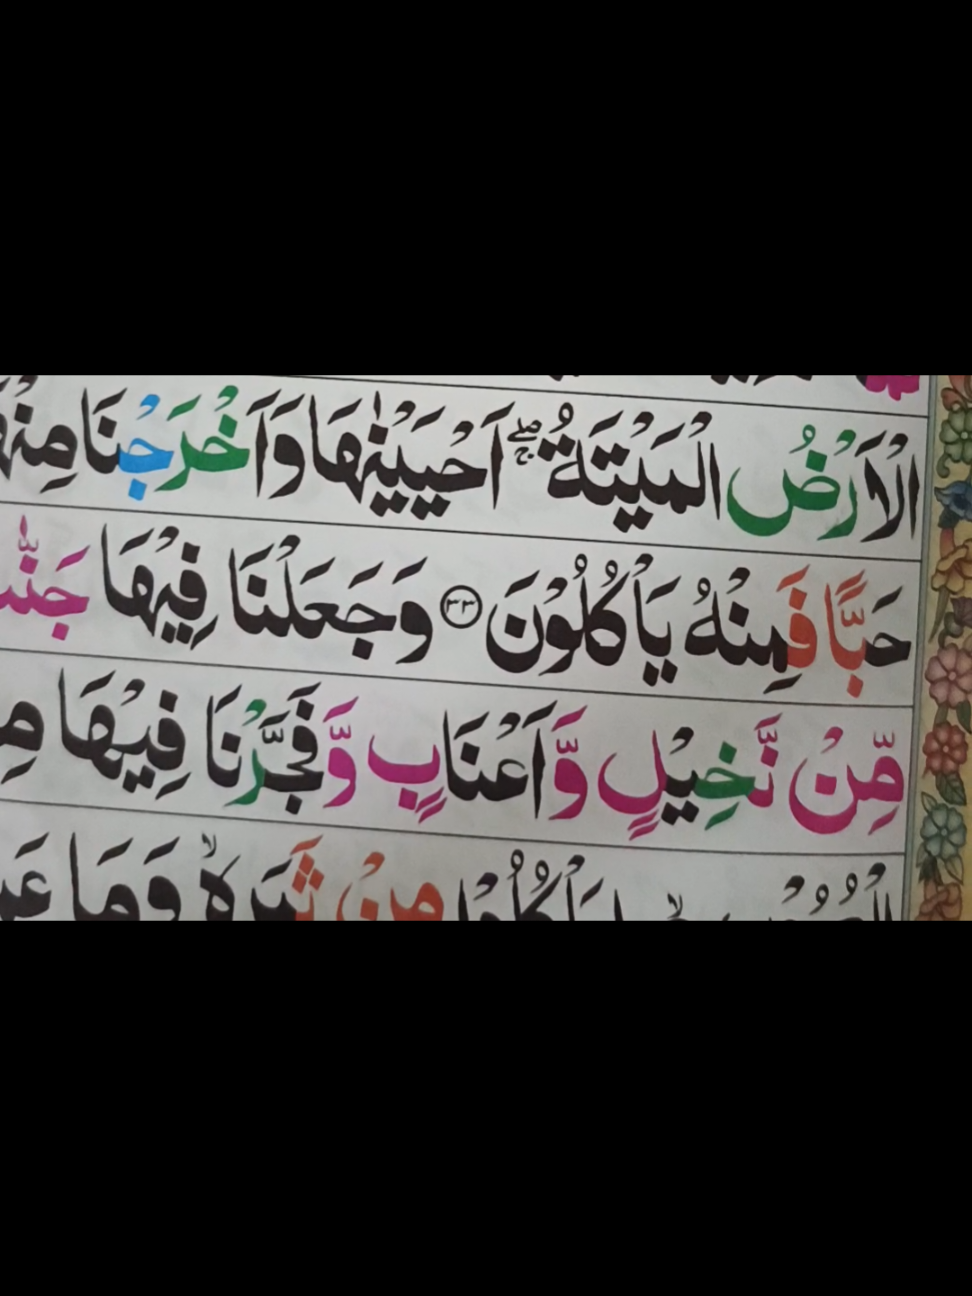 الْاَرْضُ الْمَيْتَةُ ۖۚ اَحْيَيْنٰهَا وَاَخْرَجْنَا مِنْهَا
حَبًّا فَمِنْهُ يَاْكُلُوْنَ ﴿۳۳﴾ وَجَعَلْنَا فِيْهَا جَنّٰتٍ
مِّنْ نَّخِيْلٍ وَّاَعْنَابٍ وَّفَجَّرْنَا فِيْهَا
لِيَاْكُلُوْا مِنْ ثَمَرِهٖ ۙ وَمَا